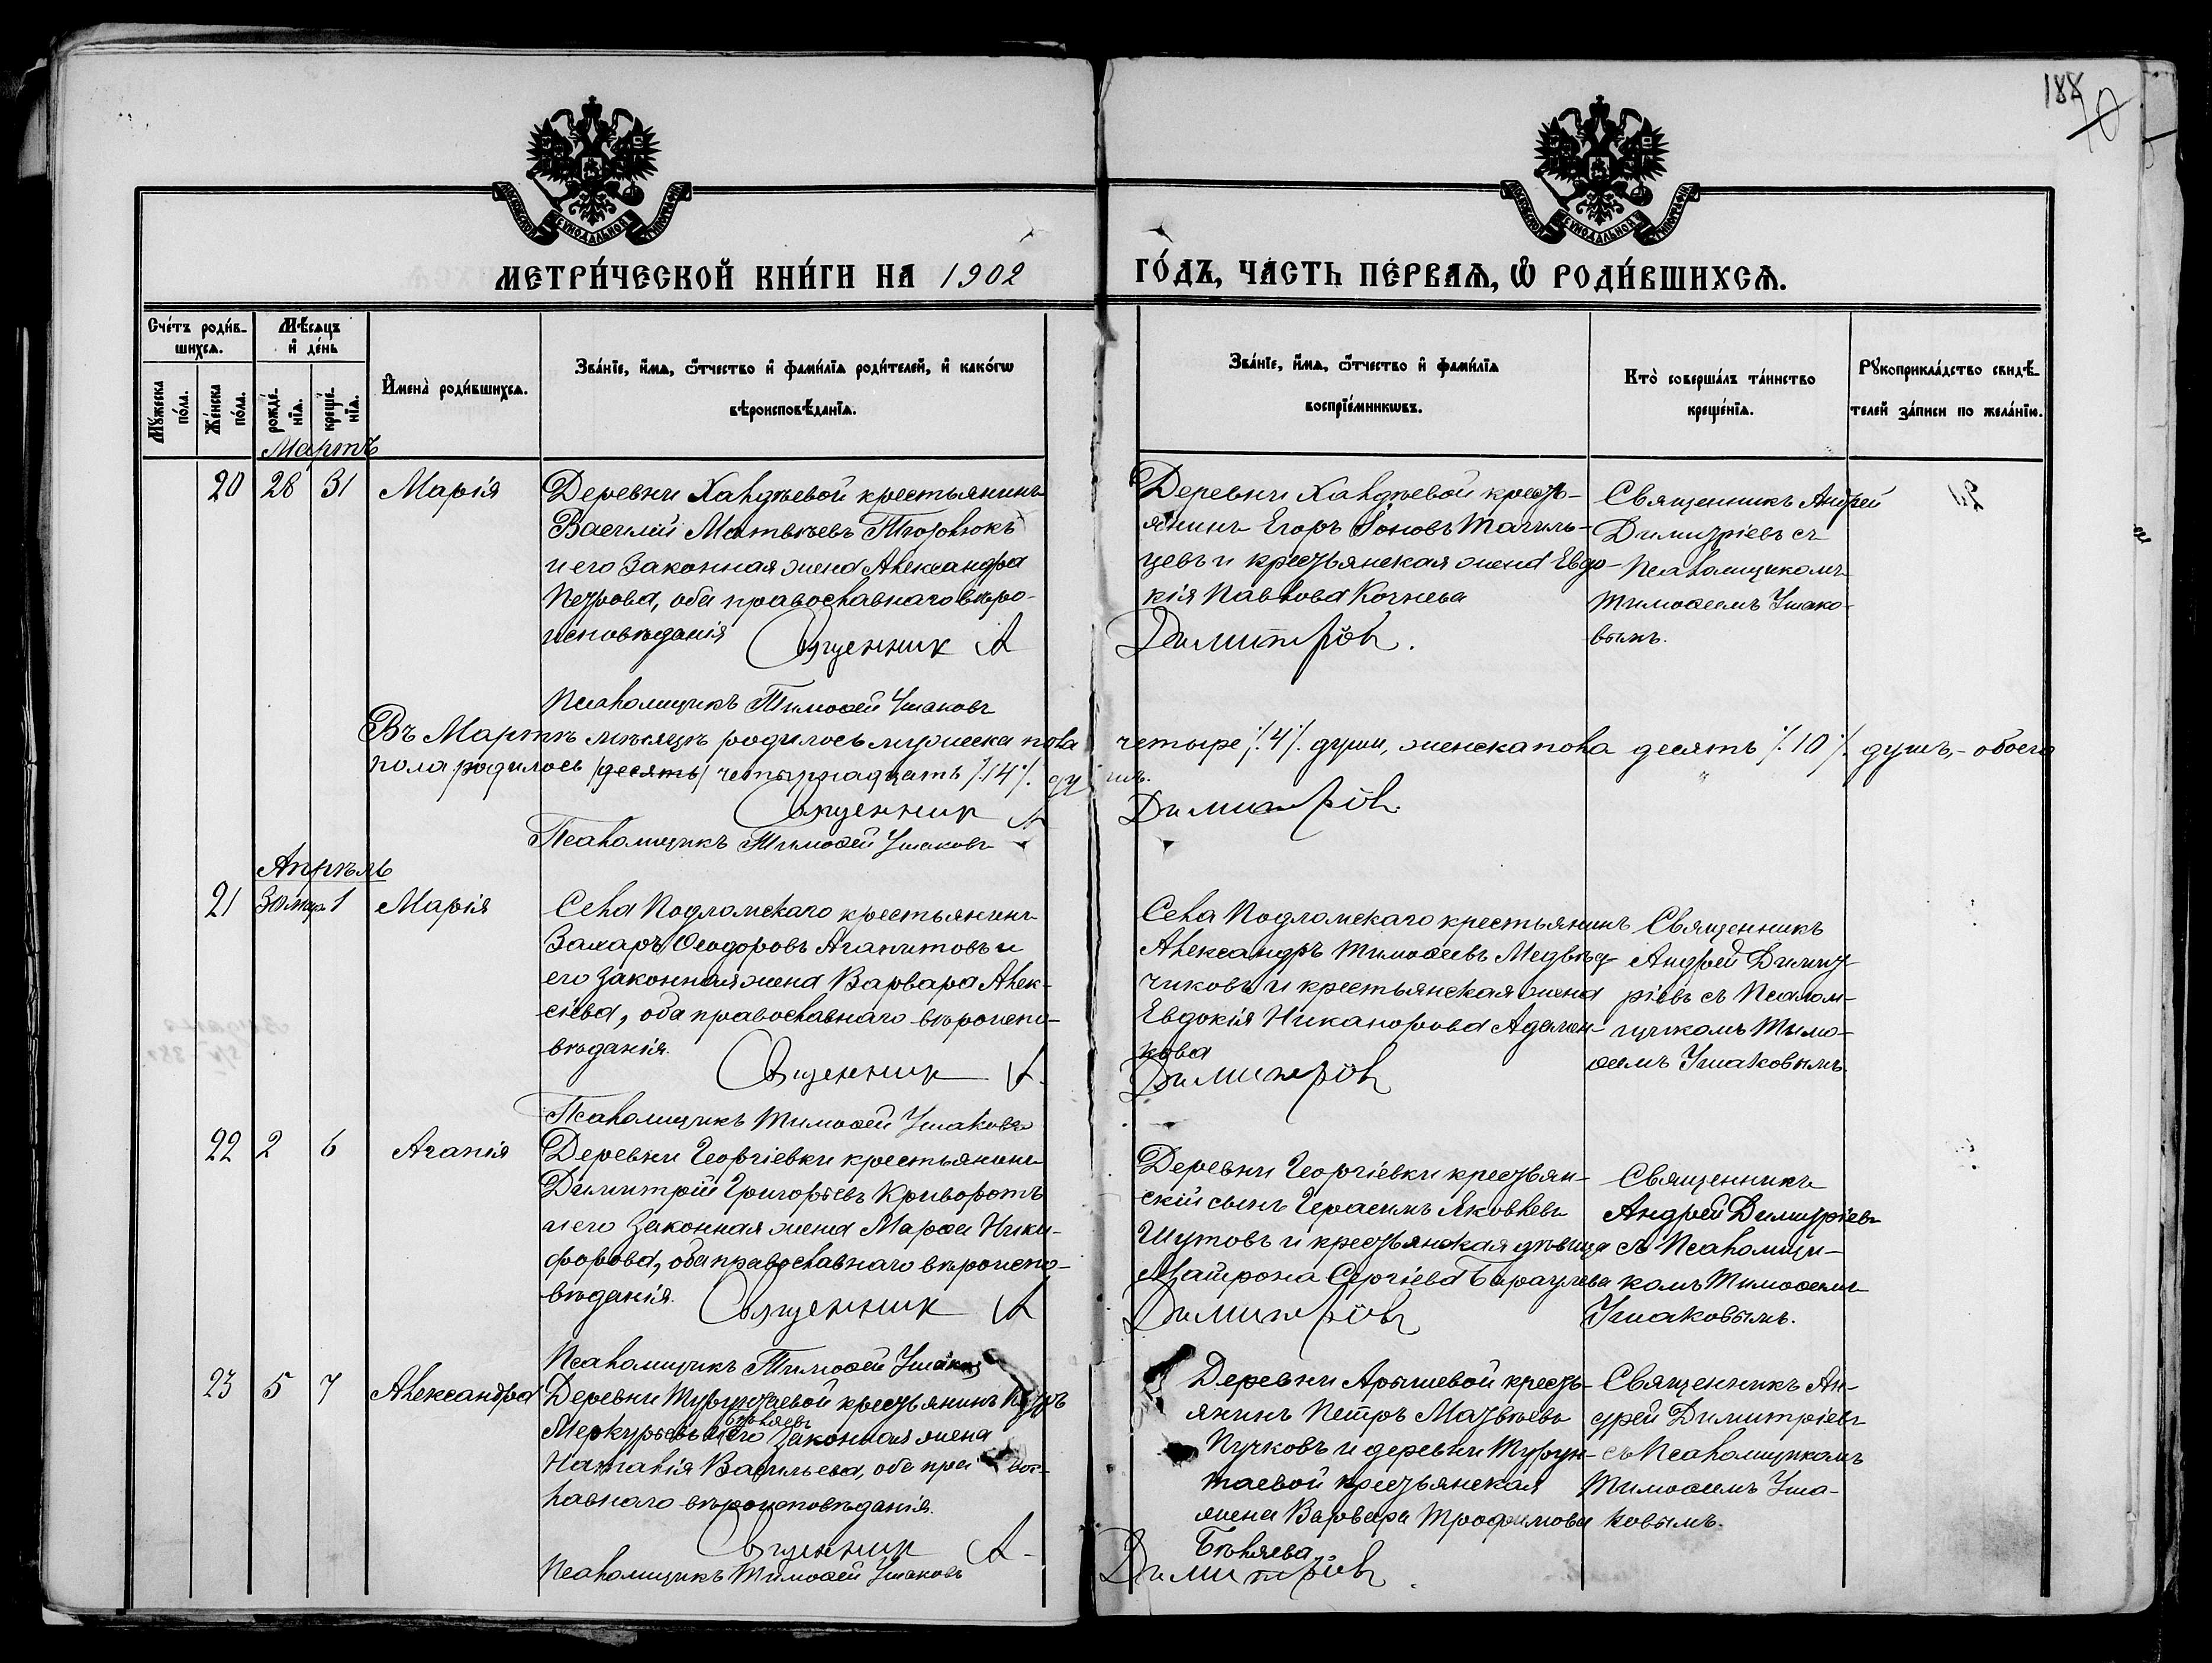 188
70
МЕТРИ́ЧЕСКОЙ КНИ́ГИ НА 1902 ГО́ДЪ, ЧА́СТЬ ПЕ́РВАѦ, Ѡ РОДИ́ВШИХСѦ.
Сче́тъ роди́в-
шихсѧ.
Мꙋ́жеска по́ла.
Же́нска по́ла.
Мѣ́сѧцъ
и҆ де́нь
рожде́-
нїѧ.
креще́-
нїѧ.
И҆мена̀ роди́вшихсѧ.
Зва́нїе, и҆́мѧ, ѻ҆́тчество и҆ фами́лїѧ роди́телей, и҆ како́гѡ
вѣроисповѣ́данїѧ.
Зва́нїе, и҆́мѧ, ѻ҆́тчество и҆ фами́лїѧ
воспрїе́мникѡвъ.
Кто̀ соверша́лъ та́инство
креще́нїѧ.
Рꙋкоприкла́дство свидѣ́-
телей за́писи по жела́нїю.
Мартъ
20 28 31 Марія
Деревни Хандѣевой крестьянинъ
Василій Матвѣевъ
и его законная жена Александра
Петрова, оба православнаго вѣро-
исповѣданія Священник А
Псаломщикъ Тимоѳей Ушаковъ
Деревни Хандѣевой кресть-
янинъ Егоръ Іоновъ Тагиль-
цевъ и крестьянская жена Евдо-
кія Павлова
Димитріев.
Священникъ Андрей
Димитріевъ съ
Псаломщикомъ
Тимоѳеемъ Ушако-
вымъ.
Въ Мартѣ мѣсяцѣ родилось мужеска пола четыре /4/ души, женска пола десять /10/ душъ, - обоего
пола родилось (десять) четырнадцать /14/ душъ.
Священник А Димитріев
Псаломщикъ Тимоѳей Ушаковъ
Апрѣль
21 30 мар. 1 Марія
Села Подломскаго крестьянинъ
Захаръ Ѳеодоровъ Агапитовъ и
его законная жена Варвара Алек-
сіева, оба православнаго вѣроиспо-
вѣданія.
Священник А.
Псаломщикъ Тимоѳей Ушаковъ
Села Подломскаго крестьянинъ
Александръ Тимоѳеевъ Медвѣд-
чиковъ и крестьянская жена
Евдокія Никанорова
кова
Димитріев
Священникъ
Андрей Димит-
ріевъ съ Псалом-
щикомъ Тимо-
ѳеемъ Ушаковымъ.
22 2 6 Агапія
Деревни Георгіевки крестьянинъ
Димитрій Григорьевъ Криворотъ
и его законная жена Марѳа Ники-
форова, оба православнаго вѣроиспо-
вѣданія. Священник А
Псаломщикъ Тимоѳей Ушаковъ
Деревни Георгіевки крестьян-
скій сынъ Герасимъ Яковлевъ
Шутовъ и крестьянская дѣвица
Матрона Сергіева
Димитріев
Священникъ
Андрей Димитріевъ
съ Псаломщи-
комъ Тимоѳеемъ
Ушаковымъ.
23 5 7 Александра
Деревни Турунтаевой крестьянинъ Петръ
Бѣляевъ
Меркурьевъ и его законная жена
Наталія Васильева, оба правос-
лавнаго вѣроисповѣданія.
Священник А
Псаломщикъ Тимоѳей Ушаковъ
Деревни Арышевой кресть-
янинъ Петръ Матвѣевъ
Пучковъ и деревни Турун-
таевой крестьянская
жена Варвара Трофимова
Бѣляева
Димитріев
Священникъ Ан-
дрей Димитріевъ
съ Псаломщикомъ
Тимоѳеемъ Уша-
ковымъ.